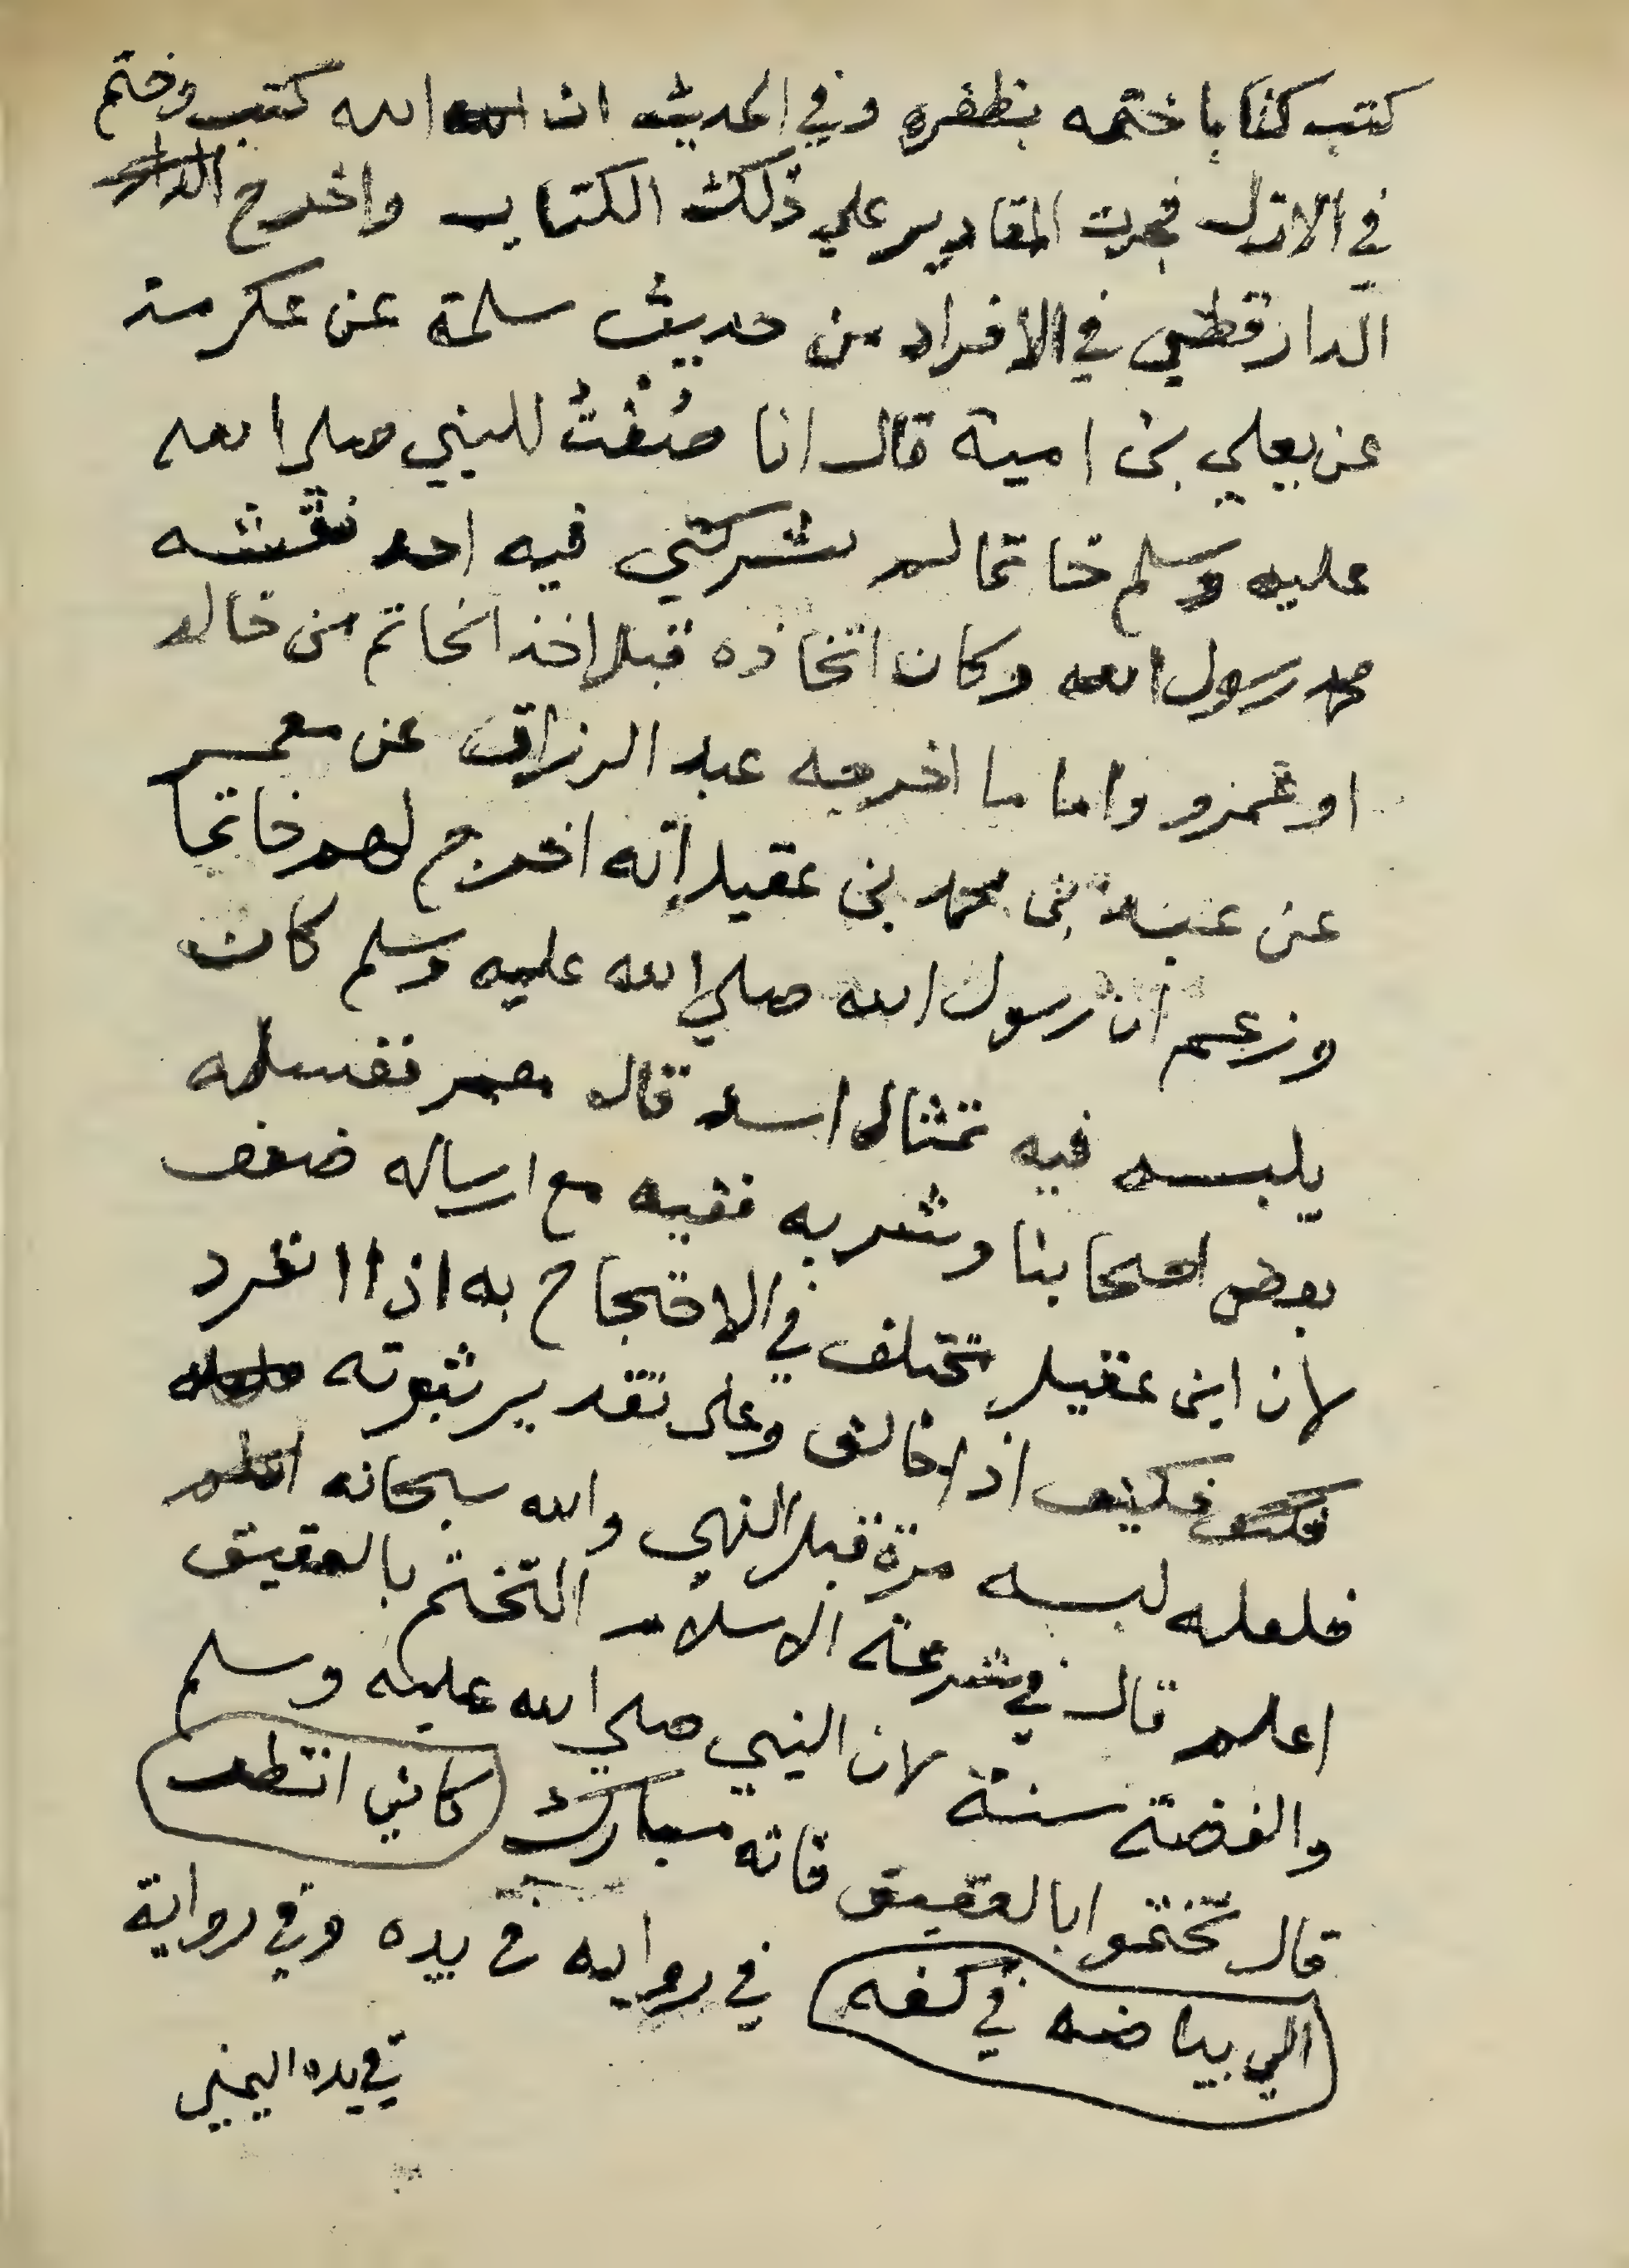 كتب كتابا ختمه بظفره وفي الحديث ان الله كتب وختم
في الازل فجرت المقادير علي ذلك الكتاب واخرج الدار
الدارقطني في الافراد من حديث سلمة عن عكرمة
عن يعلي بن امية قال انا صُنْعْتُ للنبي صلى الله
عليه وسلم خاتما لم يشركني فيه احد نقشه
محمد رسول الله وكان اتخاذه قبل اخذ الخاتم من خالد
او عمرو واما ما اخرجه عبد الرزاق عن معمر
عن عبد بن محمد بن عقيل إنه اخرج لهم خاتما
وزعم ان رسول الله صلي الله عليه وسلم كان
يلبسه فيه تمثال اسد قال معمر فغسله
بعض اصحابنا وشربه ففيه مع ارساله ضعف
لان ابن عقيل تختلف في الاحتجاح به اذا انفرد
فكيف اذا خالف وعلى تقدير ثبوته
فلعله لبسه مرة قبل النهي والله سبحانه اعلم
اعلم قال في شرعة الاسلام التختم بالعقيق
والفضة سنة لان النبي صلي الله عليه وسلم
قال تختموا بالعقيق فانه مبارك كاني انظر
الي بياضه في كفه في رواية في يده وفي رواية
في يده اليمني